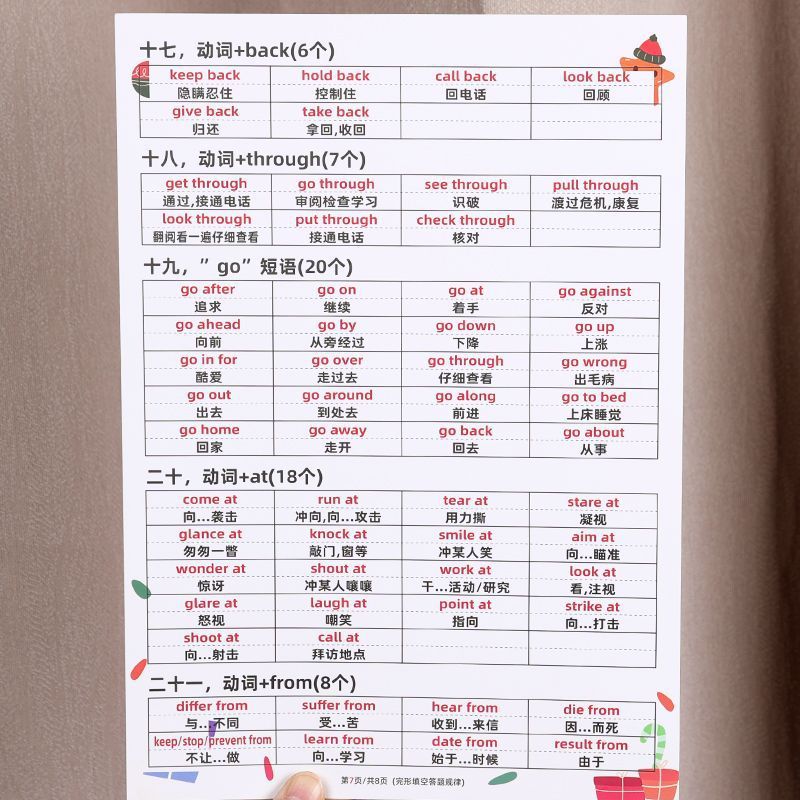 十七，动词+back(6个)
keep back hold back call back look back
隐瞒忍住 控制住 回电话 回顾
give back take back
归还 拿回,收回
十八，动词+through(7个)
get through go through see through pull through
通过,接通电话 审阅检查学习 识破 渡过危机,康复
look through put through check through
翻阅看一遍仔细查看 接通电话 核对
十九，”go”短语(20个)
go after go on go at go against
追求 继续 着手 反对
go ahead go by go down go up
向前 从旁经过 下降 上涨
go in for go over go through go wrong
酷爱 走过去 仔细查看 出毛病
go out go around go along go to bed
出去 到处去 前进 上床睡觉
go home go away go back go about
回家 走开 回去 从事
二十，动词+at(18个)
come at run at tear at stare at
向...袭击 冲向,向...攻击 用力撕 凝视
glance at knock at smile at aim at
匆匆一瞥 敲门,窗等 冲某人笑 向...瞄准
wonder at shout at work at look at
惊讶 冲某人嚷嚷 干...活动/研究 看,注视
glare at laugh at point at strike at
怒视 嘲笑 指向 向...打击
shoot at call at
向...射击 拜访地点
二十一，动词+from(8个)
differ from suffer from hear from die from
与...不同 受...苦 收到...来信 因...而死
keep/stop/prevent from learn from date from result from
不让...做 向...学习 始于...时候 由于
第7页/共8页 (完形填空答题规律)